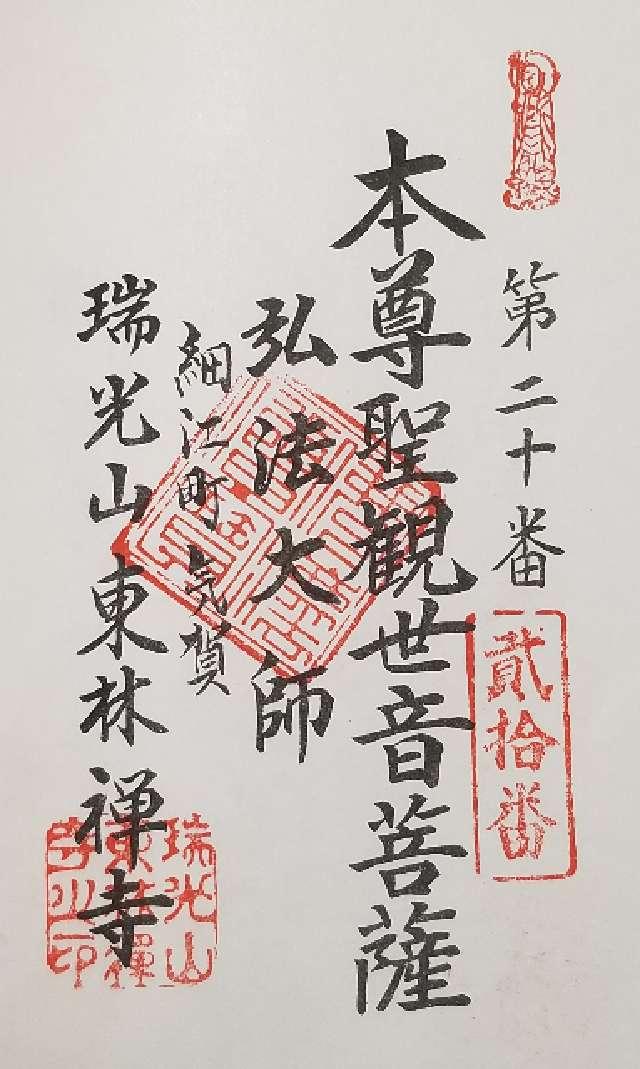 第二十番
貳拾番
本尊聖観世音菩薩
弘法大師
細江町気賀
瑞光山東林禅寺
瑞光山
東林禪
寺之印